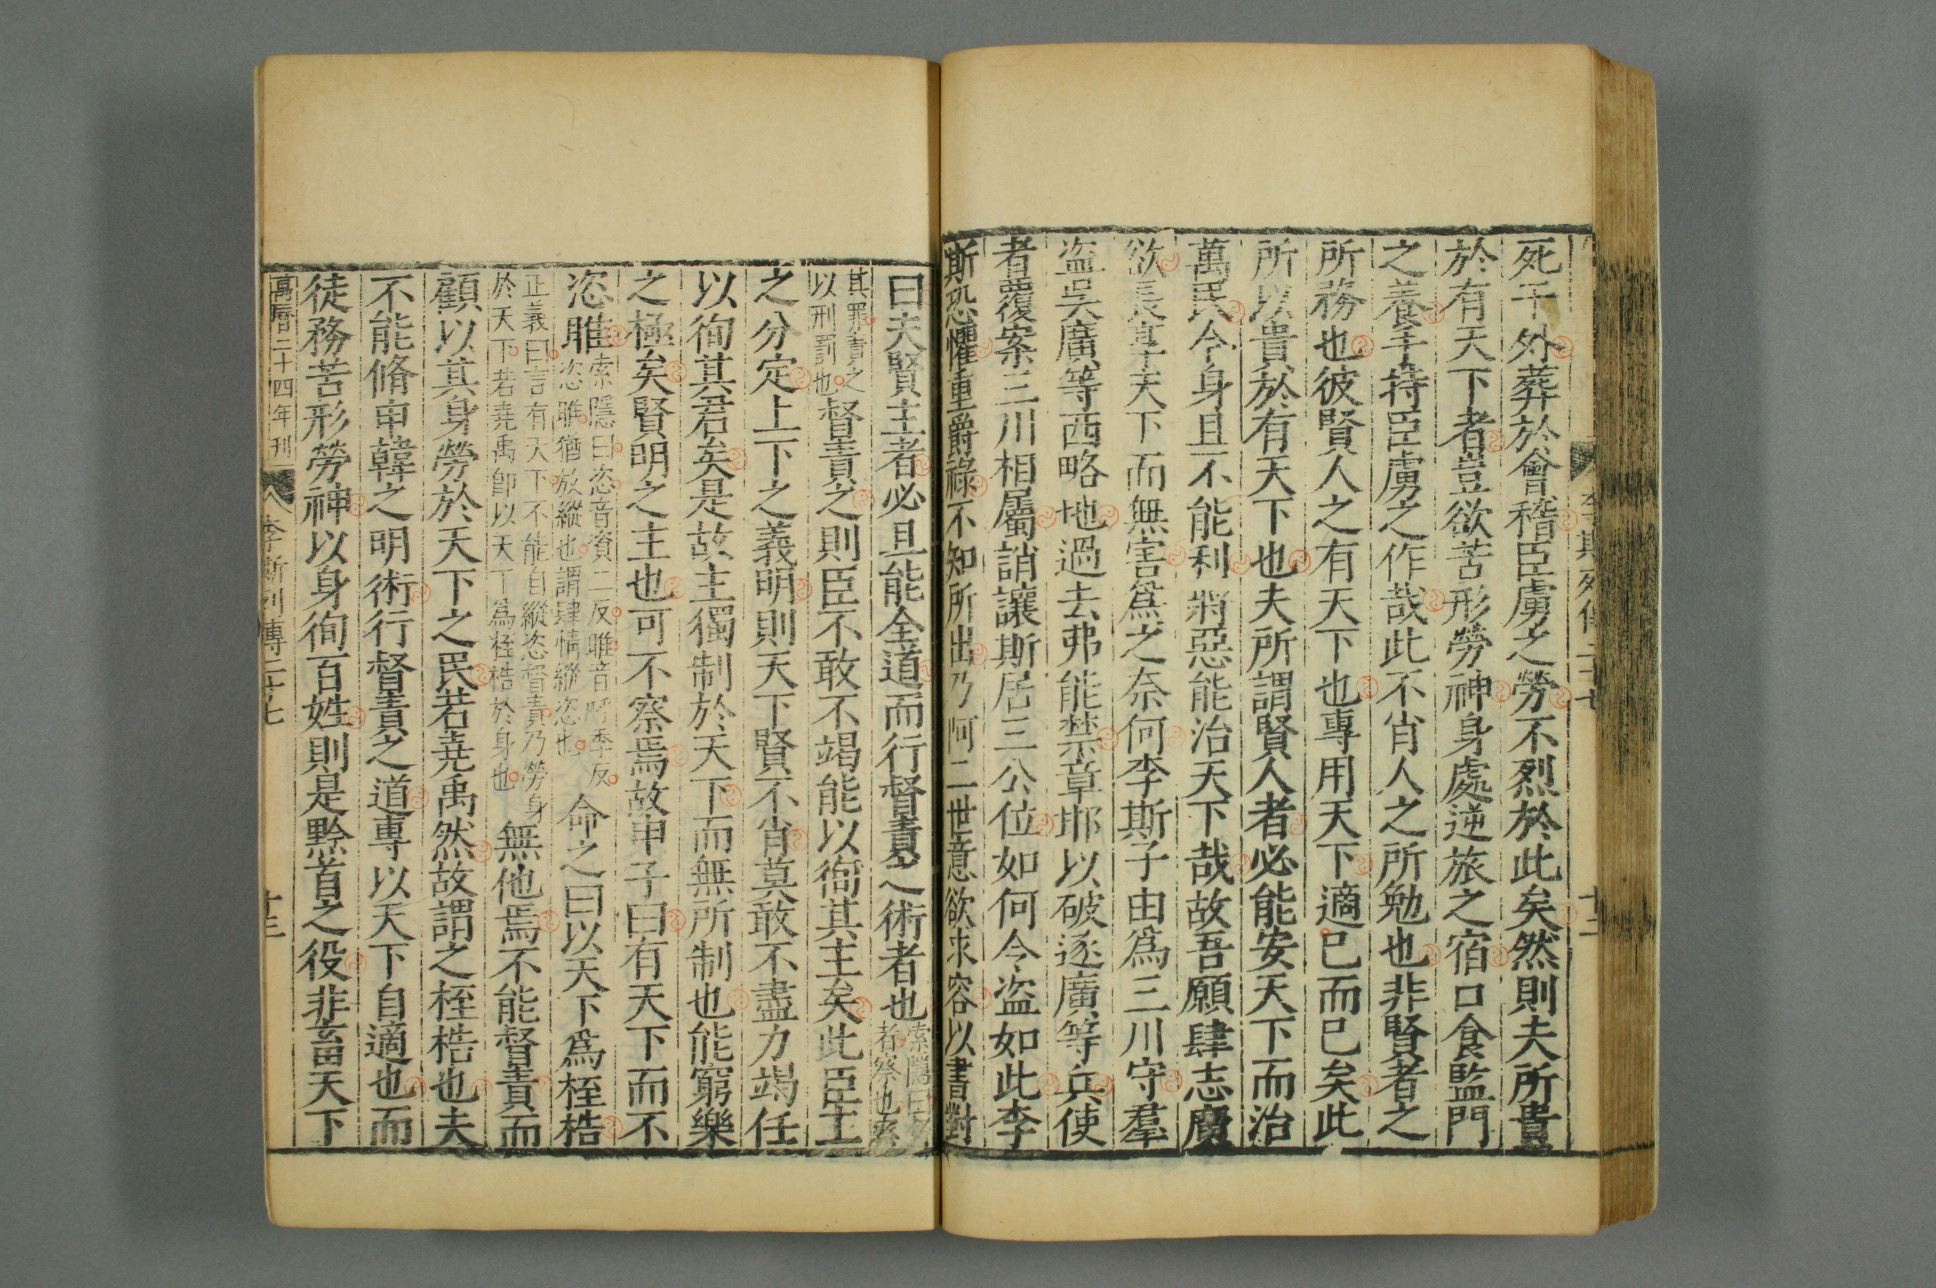 死于外葬於會稽臣虜之勞不烈於此矣然則夫所貴
於有天下者豈欲苦形勞神身處逆旅之宿口食監門
之養手持臣虜之作哉此不肖人之所勉也非賢者之
所務也彼賢人之有天下也專用天下適已而已矣此
所以貴於有天下也夫所謂賢人者必能安天下而治
萬民今身且不能利將惡能治天下哉故吾願肆志廣
欲長享天下而無害爲之奈何李斯子由爲三川守羣
盗吳廣等西略地過去弗能禁章邯以破逐廣等兵使
者覆案三川相屬誚讓斯居三公位如何令盗如此李
斯恐懼重爵祿不知所出乃阿二世意欲求容以書對
曰夫賢主者必且能全道而行督責之術者也索隱曰督
者察也察
其罪責之
以刑罰也督責之則臣不敢不竭能以徇其主矣此臣主
之分定上下之義明則天下賢不肖莫敢不盡力竭任
以徇其君矣是故主獨制於天下而無所制也能窮樂
之極矣賢明之主也可不察焉故申子曰有天下而不
恣睢索隱曰恣音資二反睢音呼季反
恣睢猶放縱也謂肆情縱恣也命之曰以天下爲桎梏
正義曰言有天下不能自縱恣督責乃勞身
於天下若堯禹卽以天下爲桎梏於身也無他焉不能督責而
顧以其身勞於天下之民若堯禹然故謂之桎梏也夫
不能脩申韓之明術行督責之道專以天下自適也而
徒務苦形勞神以身徇百姓則是黔首之役非畜天下
萬曆二十四年刊
李斯列傳二十七
十三